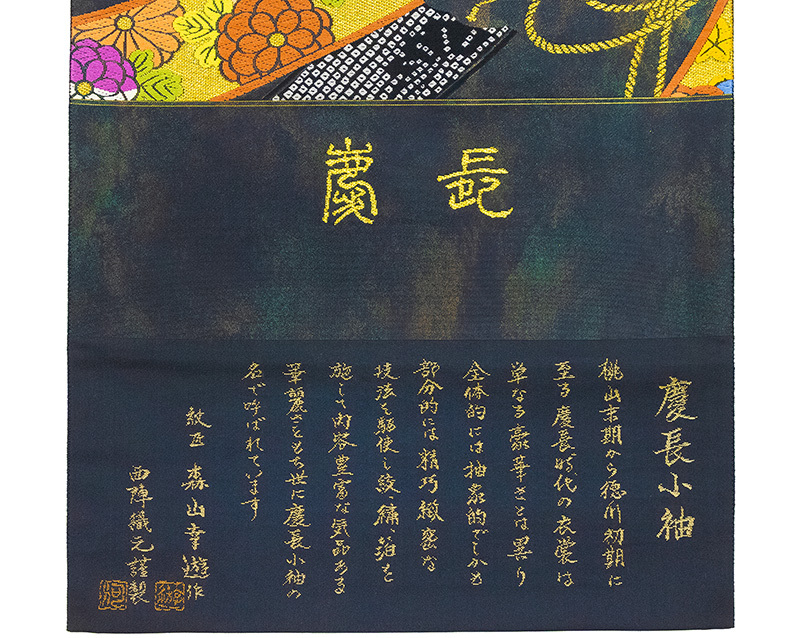 慶長
慶長小袖
桃山末期から徳川初期に
至る慶長時代の衣裳は
単なる豪華さとは異り
全体的には抽象的でしかも
部分的には精巧緻密な
技法を駆使し絞、繍、箔を
施して内容豊富な気品ある
華麗さをもち世に慶長小袖の
名で呼ばれています
紋匠 森山幸遊作
西陣織元謹製